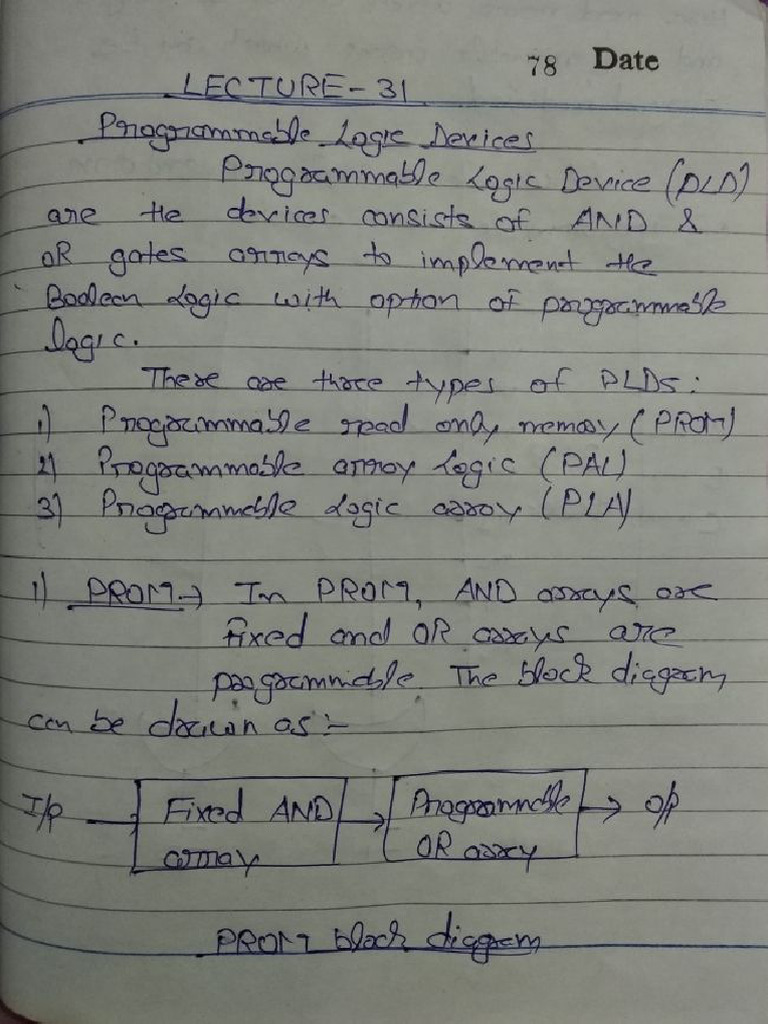 78 Date
LECTURE-31
Programmable Logic Devices
Programmable Logic Device (PLD)
are the devices consists of AND &
OR gates arrays to implement the
Boolean Logic with option of programmable
logic.
There are three types of PLDs:
1) Programmable read only memory (PROM)
2) Programmable array Logic (PAL)
3) Programmable Logic array (PLA)
1) PROM → In PROM, AND arrays are
fixed and OR arrays are
programmable. The block diagram
can be drawn as :-
I/P → Fixed AND array → Programmable OR array → O/P
PROM block diagram